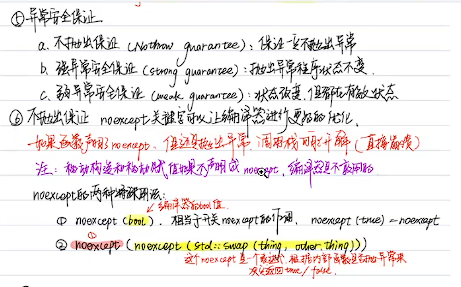 ① 异常安全保证
a. 不抛出保证 (Nothrow guarantee): 保证一定不抛出异常
b. 强异常安全保证 (strong guarantee): 抛出异常程序状态不变.
c. 弱异常安全保证 (weak guarantee): 状态改变, 但都在有效状态
② 不抛出保证 noexcept关键字可以让编译器进行更好的优化.
如果函数声明了noexcept, 但还是抛出异常, 调用栈可能开解 (直接崩溃)
注: 移动构造和移动赋值如果不声明成noexcept, 编译器是不敢用的
noexcept的两种语法:
编译器的bool值
① noexcept (bool), 相当于开关noexcept的作用, noexcept (true) = noexcept
① 
② noexcept (noexcept (std::swap (thing, other.thing)))
这个noexcept是一个运算符, 根据内部函数是否抛异常来
返回true / false.